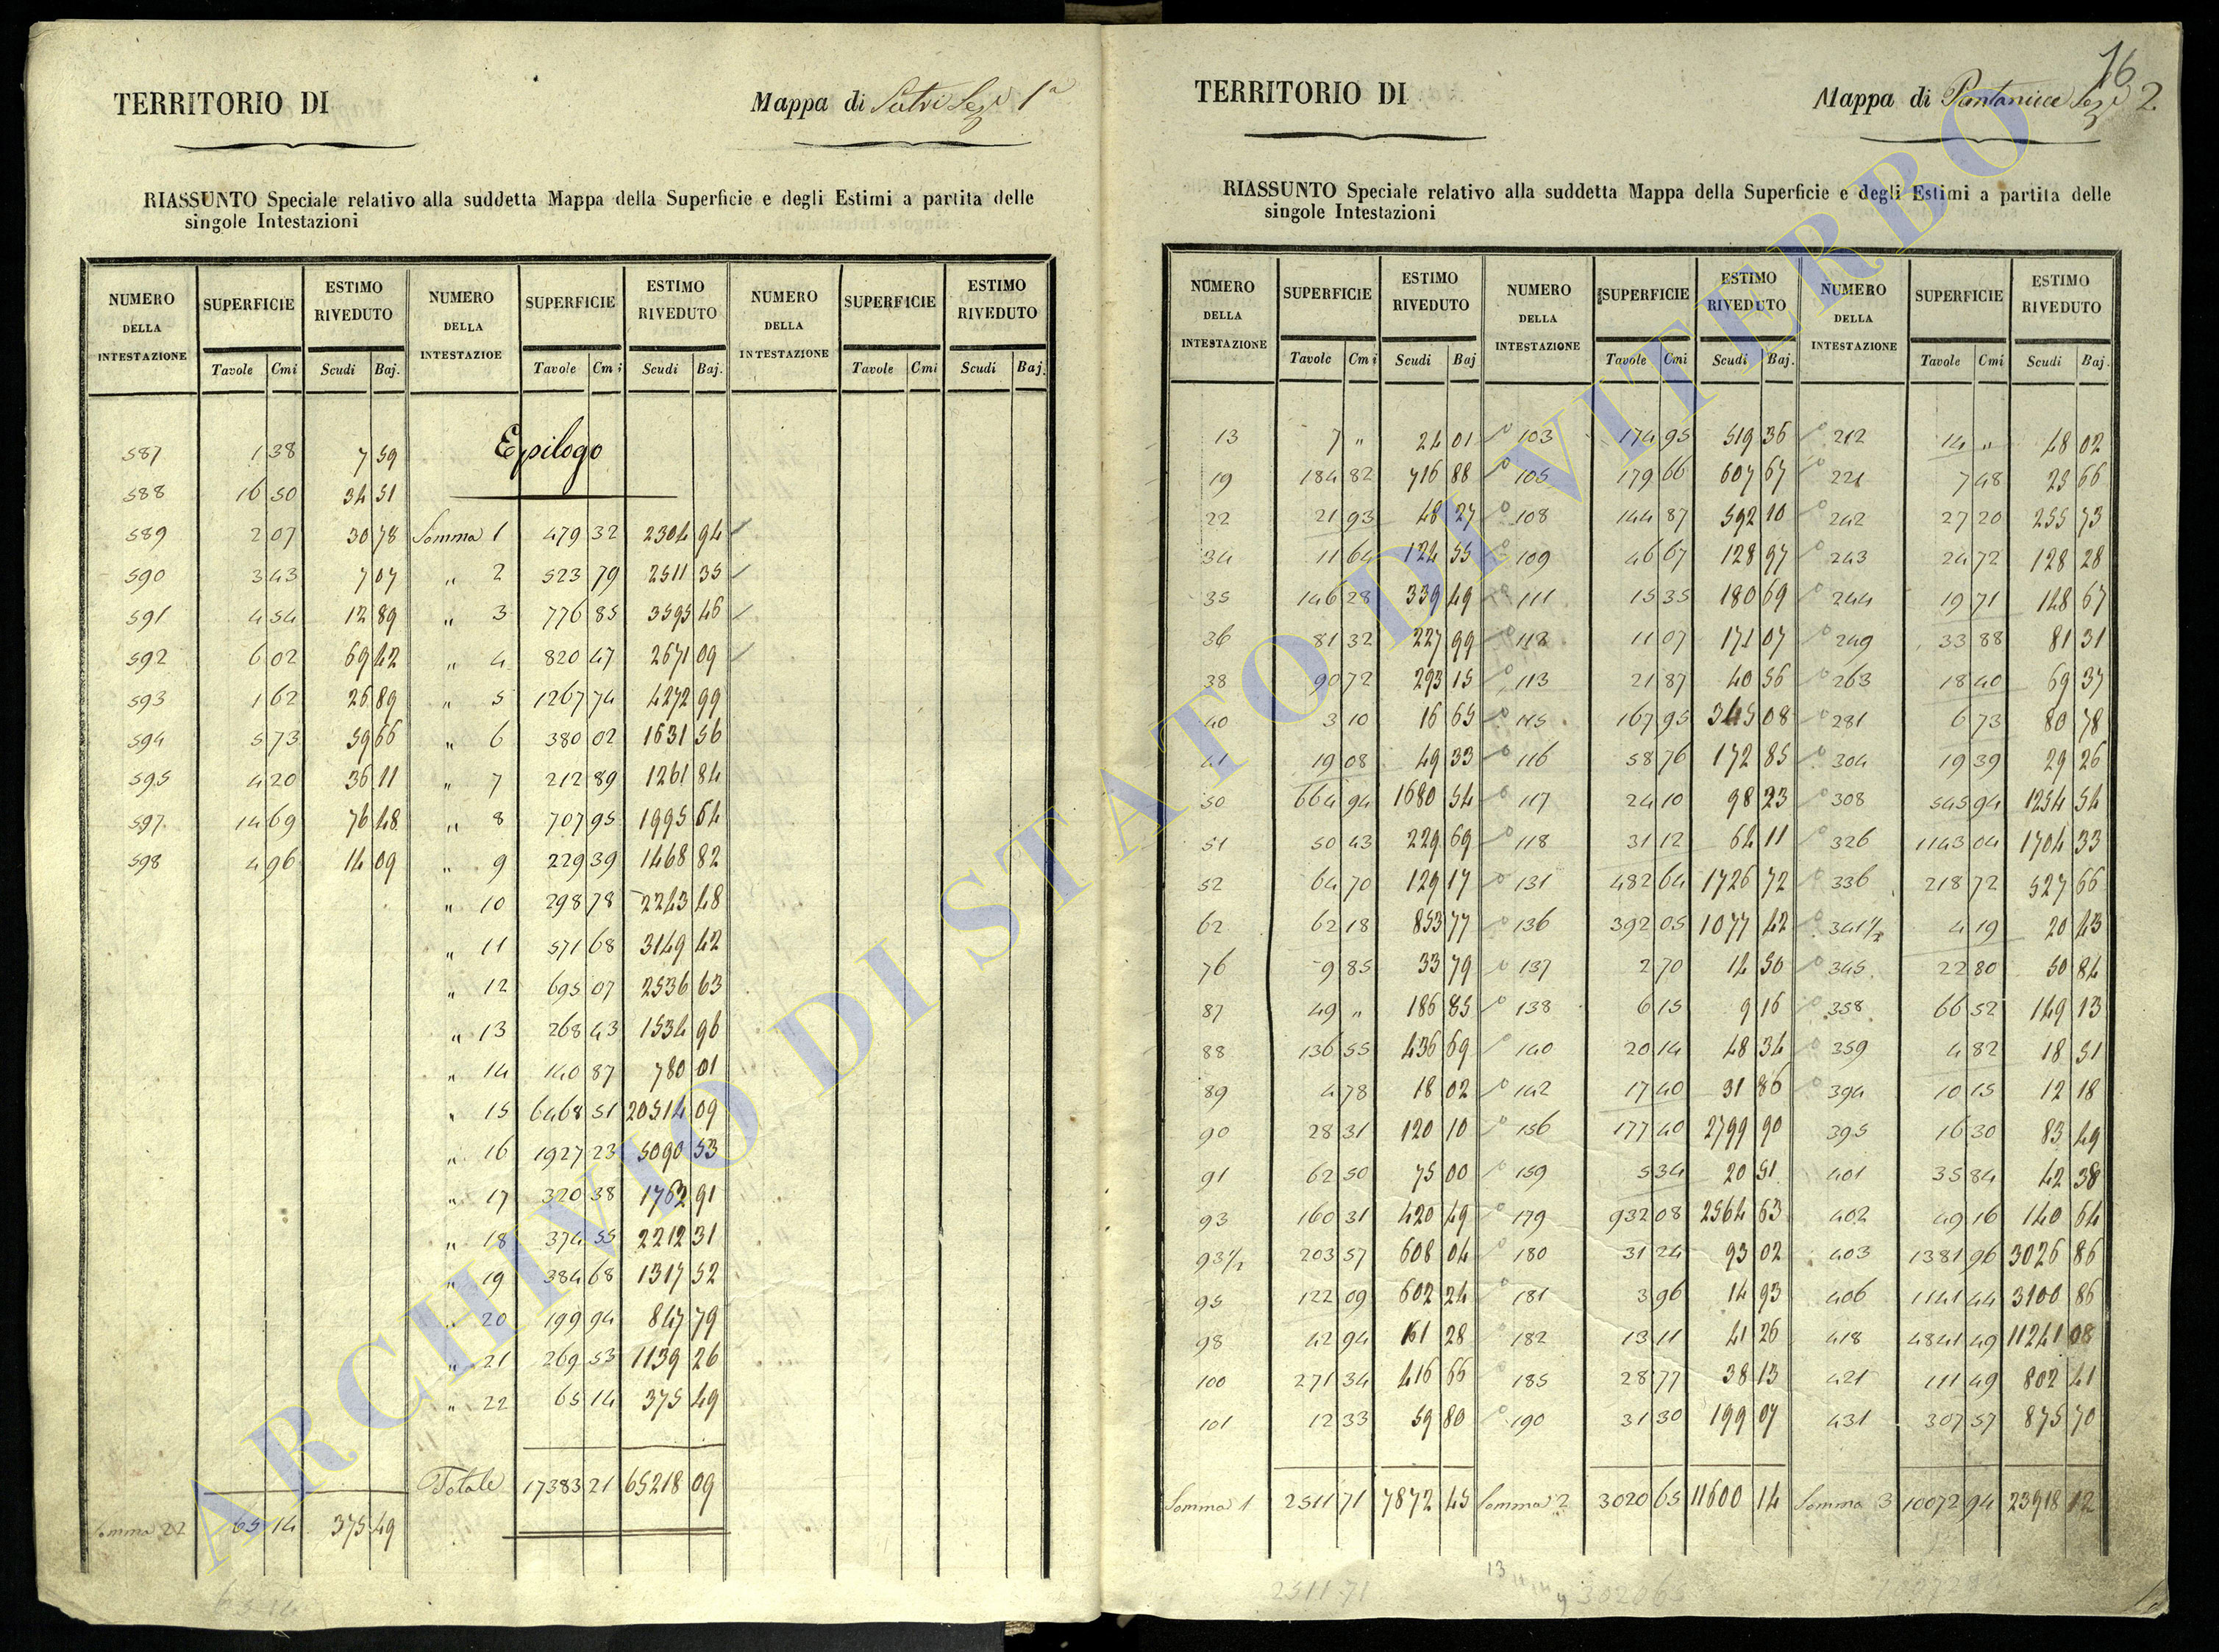 TERRITORIO DI
Mappa di Sutri Sez.e 1a
RIASSUNTO Speciale relativo alla suddetta Mappa della Superficie e degli Estimi a partita delle
singole Intestazioni
NUMERO DELLA INTESTAZIONE SUPERFICIE ESTIMO RIVEDUTO NUMERO DELLA INTESTAZIOE SUPERFICIE ESTIMO RIVEDUTO NUMERO DELLA INTESTAZIONE SUPERFICIE ESTIMO RIVEDUTO
Tavole Cmi Scudi Baj. Tavole Cmi Scudi Baj. Tavole Cmi Scudi Baj.
587 1 38 7 59 Epilogo
588 16 50 34 51
589 2 07 30 78 Somma 1 479 32 2304 94
590 3 43 7 07 " 2 523 79 2511 35
591 4 54 12 89 " 3 776 85 3595 46
592 6 02 69 42 " 4 820 47 2671 09
593 1 62 26 89 " 5 1267 74 4272 99
594 5 73 59 66 " 6 380 02 1631 56
595 4 20 36 11 " 7 212 89 1261 84
597 14 69 76 48 " 8 707 95 1995 64
598 4 96 14 09 " 9 229 39 1468 82
" 10 298 78 2243 48
" 11 571 68 3149 42
" 12 695 07 2536 63
" 13 268 43 1534 96
" 14 140 87 780 01
" 15 6468 51 20514 09
" 16 1927 23 5090 53
" 17 320 38 1762 91
" 18 374 55 2212 31
" 19 384 68 1317 52
" 20 199 94 847 79
" 21 269 53 1139 26
" 22 65 14 375 49
Totale 17383 21 65218 09
Somma 22 65 14 375 49
65 14
16
TERRITORIO DI
Mappa di Pantanicce Sez.e 2.
RIASSUNTO Speciale relativo alla suddetta Mappa della Superficie e degli Estimi a partita delle
singole Intestazioni
NUMERO DELLA INTESTAZIONE SUPERFICIE ESTIMO RIVEDUTO NUMERO DELLA INTESTAZIONE SUPERFICIE ESTIMO RIVEDUTO NUMERO DELLA INTESTAZIONE SUPERFICIE ESTIMO RIVEDUTO
Tavole Cmi Scudi Baj Tavole Cmi Scudi Baj. Tavole Cmi Scudi Baj.
13 7 " 24 01 103 174 95 519 36 212 14 " 48 02
19 184 82 716 88 105 179 66 607 67 221 7 48 25 66
22 21 93 48 27 108 144 87 592 10 242 27 20 255 73
34 11 64 124 55 109 46 67 128 97 243 24 72 128 28
35 146 28 339 49 111 15 35 180 69 244 19 71 148 67
36 81 32 227 99 112 11 07 171 07 249 33 88 81 31
38 90 72 293 15 113 21 87 40 56 263 18 40 69 37
40 3 10 16 65 115 167 95 345 08 281 6 73 80 78
41 19 08 49 33 116 58 76 172 85 304 19 39 29 26
50 664 94 1680 54 117 24 10 98 23 308 545 94 1254 54
51 50 43 229 69 118 31 12 64 11 326 1143 04 1704 33
52 64 70 129 17 131 482 64 1726 72 336 218 72 527 66
62 62 18 853 77 136 392 05 1077 42 341 1/2 4 19 20 43
76 9 85 33 79 137 2 70 14 50 345 22 80 50 84
87 49 " 186 85 138 6 15 9 16 358 66 52 149 13
88 136 55 436 69 140 20 14 48 34 359 4 82 18 51
89 4 78 18 02 142 17 40 31 86 394 10 15 12 18
90 28 31 120 10 156 177 40 2799 90 395 16 30 83 49
91 62 50 75 00 159 5 34 20 51 401 35 84 42 38
93 160 31 420 49 179 932 08 2564 63 402 49 16 140 64
93 1/2 203 57 608 04 180 31 24 93 02 403 1381 96 3026 86
95 122 09 602 24 181 3 96 14 93 406 1141 44 3100 86
98 42 94 161 28 182 13 11 41 26 418 4841 49 11241 08
100 271 34 416 66 185 28 77 38 13 421 111 49 802 41
101 12 33 59 80 190 31 30 199 07 431 307 57 875 70
Somma 1 2511 71 7872 45 Somma 2 3020 65 11600 14 Somma 3 10072 94 23918 12
2511 71 3020 65
ARCHIVIO DI STATO DI VITERBO